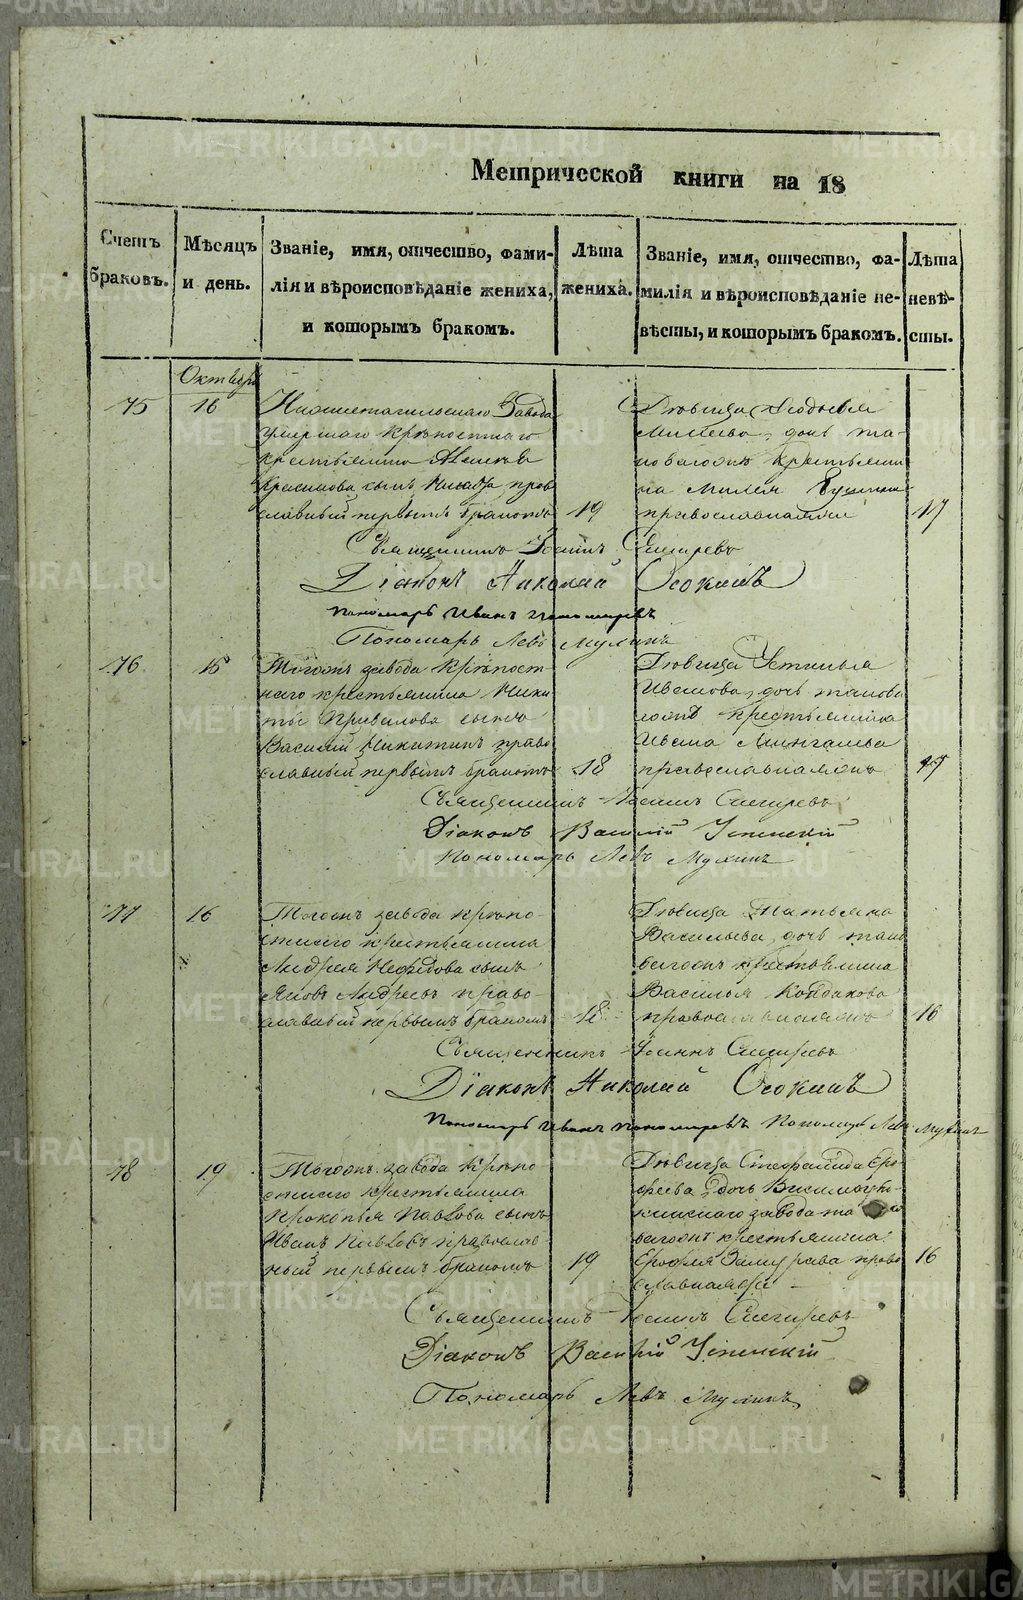 Метрической книги на 18
Счетъ браковъ.
Мѣсяцъ и день.
Званіе, имя, отчество, фами-
лія и вѣроисповѣданіе жениха,
и которымъ бракомъ.
Лѣта жениха.
Званіе, имя, отчество, фа-
милія и вѣроисповѣданіе не-
вѣсты, и которымъ бракомъ.
Лѣта невѣ-
сты.
Октября
75
16
Нижнетагильскаго Завода
умершаго крѣпостнаго
крестьянина
сынъ прав
славный первымъ бракомъ
19
Дѣвица Федосья
дочь та-
коваго крестьяни
на
православная
17
Священникъ Іоаннъ Снигиревъ
Діаконъ Николай Осокинъ
Пономарь Иванъ Пономаревъ
Пономарь Левъ Мухинъ
76
15
Тогожъ завода крѣпост
наго крестьянина Ники
ты сынъ
Василій Никитинъ право
славный первымъ бракомъ
18
Дѣвица Устинья
Иванова, дочь таков
крестьянина
Ивана
православная
17
Священникъ Іоаннъ Снигиревъ
Діаконъ Василій Успенскій
Пономарь Левъ Мухинъ
77
16
Тогожъ завода крѣпо-
стнаго крестьянина
Андрея Нефедова сынъ
Яковъ Андреевъ право-
славный первымъ бракомъ
18
Дѣвица Татьяна
Васильева, дочь тако
вагожъ крестьянина
Василья Кондакова
православная
16
Священникъ Іоаннъ Снигиревъ
Діаконъ Николай Осокинъ
Пономарь Иванъ Пономаревъ Пономарь Левъ Мухинъ
78
19
Тогожъ завода крѣпо
стнаго крестьянина
Прокопья Павлова сынъ
Иванъ Павловъ православ
ный первымъ бракомъ
19
Дѣвица Стефанида Еро-
феева дочь Висимоутк-
инскаго завода та
вагожъ крестьянина
Ерофея право
славная
16
Священникъ Іоаннъ Снигиревъ
Діаконъ Василій Успенскій
Пономарь Левъ Мухинъ
METRIKI.GASO-URAL.RU